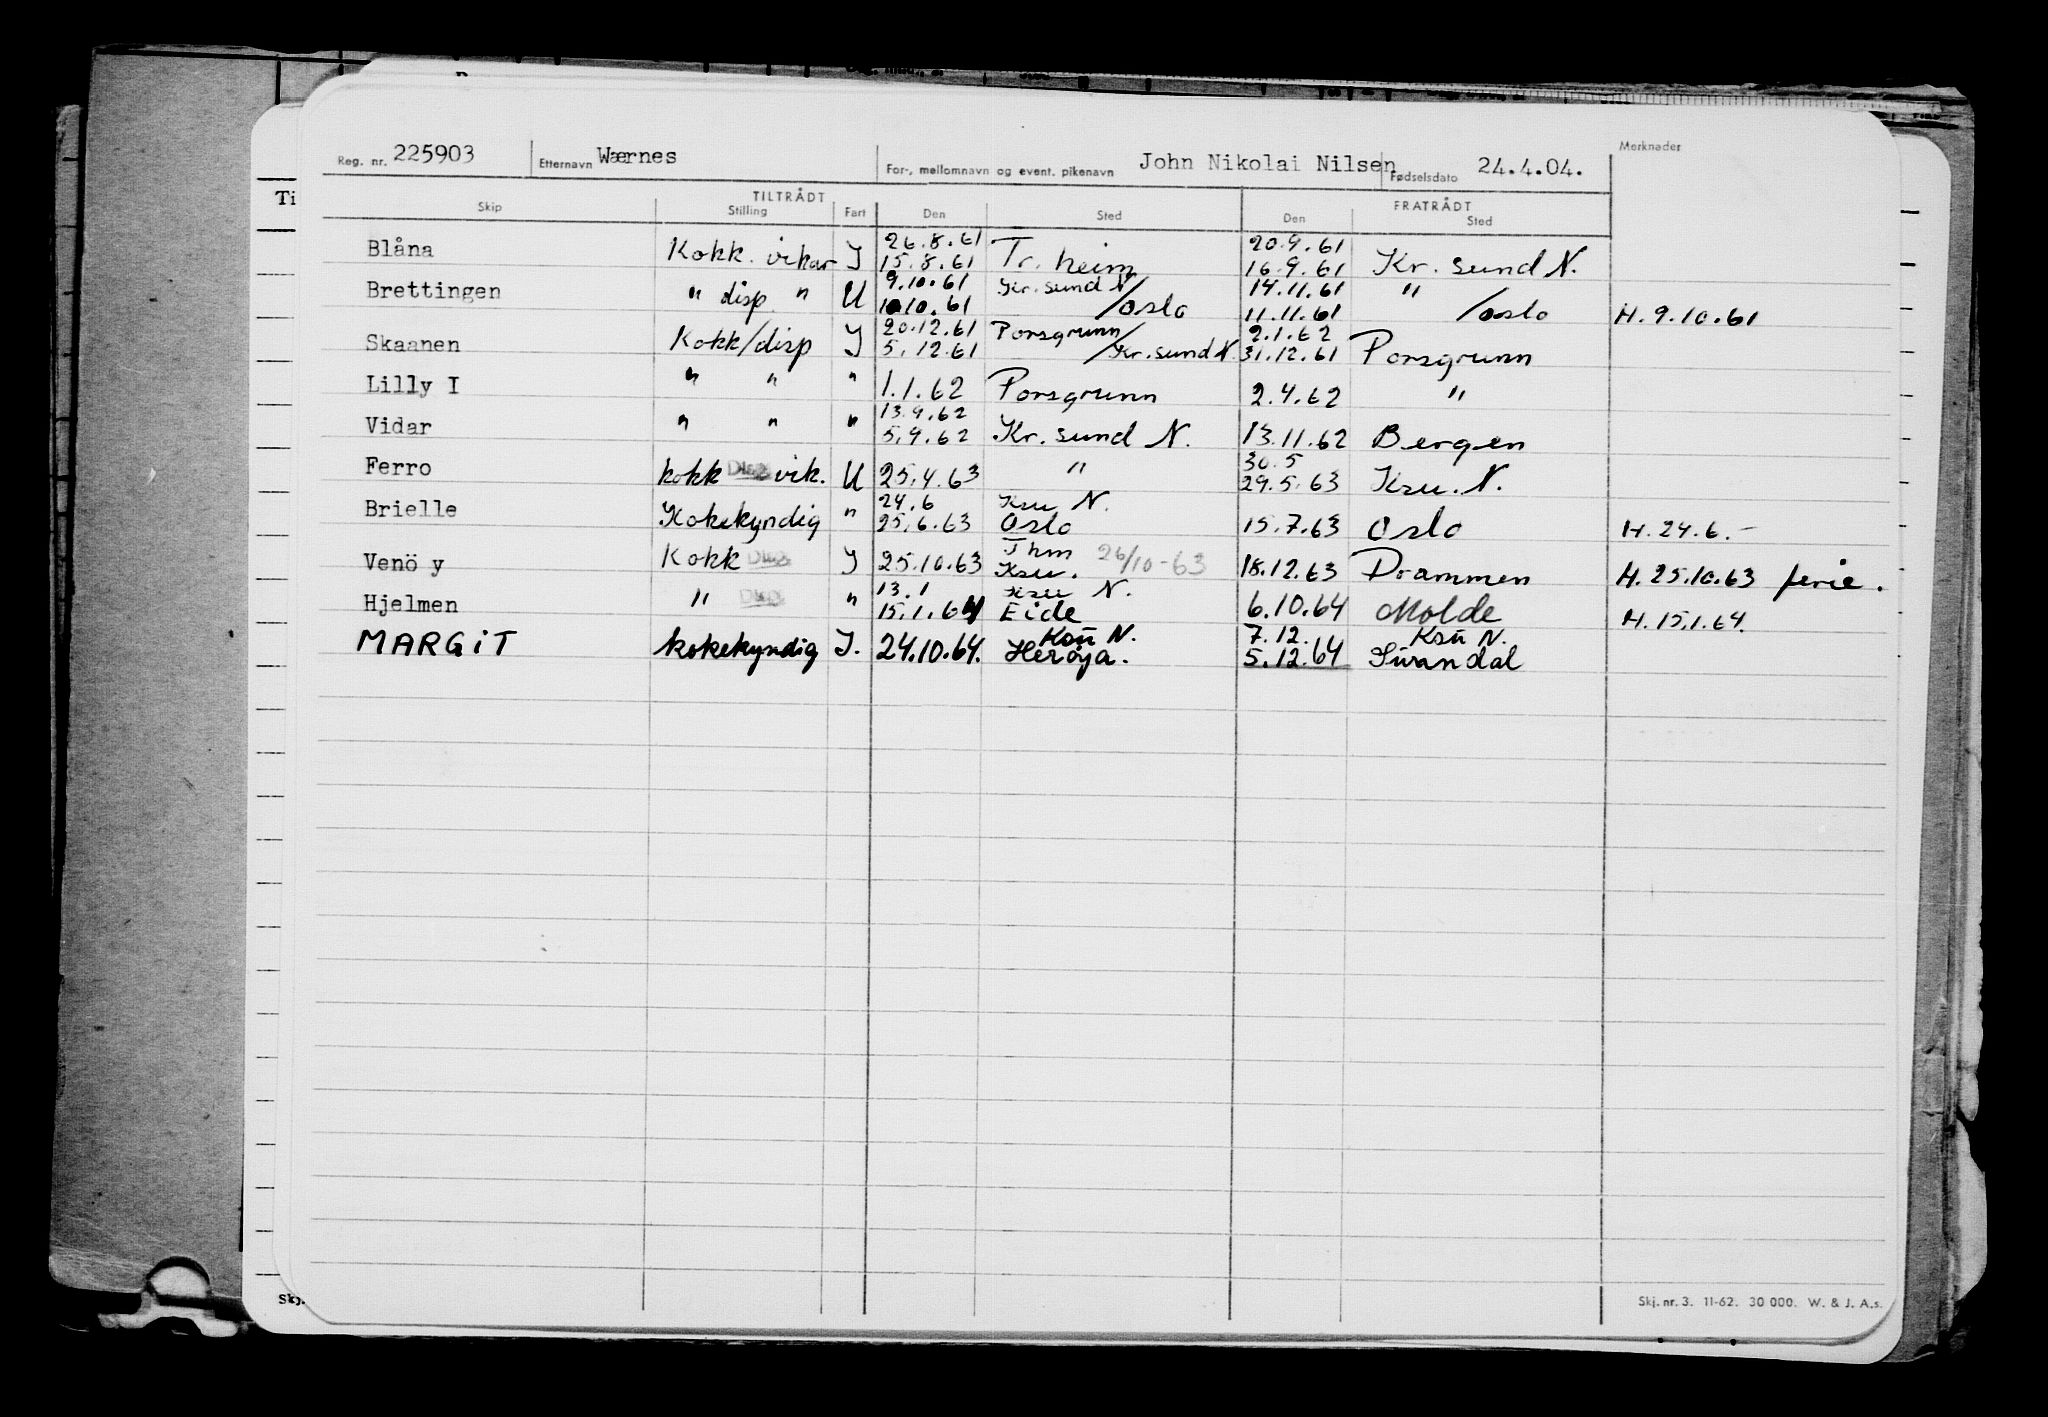 Reg. nr. 225903 Etternavn Wærnes For-, mellomnavn og event. pikenavn John Nikolai Nilsen Fødselsdato 24.4.04. Merknader
TILTRÅDT FRATRÅDT
Ti Skip Stilling Fart Den Sted Den Sted
26.8.61 20.9.61
Blåna Kokk. vikar I 15.8.61 Tr. heim 16.9.61 Kr. sund N.
9.10.61 Kr. sund N 14.11.61 "
Brettingen " disp. " U 10.10.61 /Oslo 11.11.61 /Oslo H. 9.10.61
20.12.61 Porsgrunn 2.1.62
Skaanen Kokk/disp I 5.12.61 /Kr. sund N. 31.12.61 Porsgrunn
Lilly I " " " 1.1.62 Porsgrunn 2.4.62 "
13.9.62
Vidar " " " 5.9.62 Kr. sund N. 13.11.62 Bergen
30.5
Ferro kokk Disp vik. U 25.4.63 " 29.5.63 Ksu. N.
24.6 Ksu N.
Brielle Kokekyndig " 25.6.63 Oslo 15.7.63 Oslo H. 24.6.-
Thm 26/10-63
Venö y Kokk Disp I 25.10.63 Ksu. 18.12.63 Drammen H. 25.10.63 ferie.
13.1 Ksu N.
Hjelmen " Disp " 15.1.64 Eide 6.10.64 Molde H. 15.1.64.
Ksu N. 7.12. Ksu N.
MARGiT kokekyndig I. 24.10.64. Herøya. 5.12.64 Surandal
Skj. Skj. nr. 3. 11-62. 30 000. W. & J. A.s.